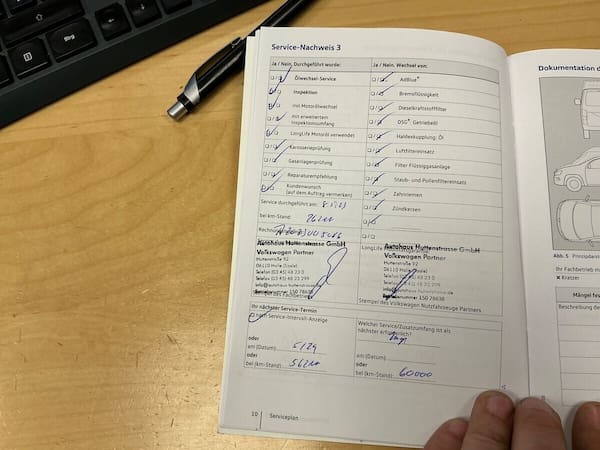 Service-Nachweis 3
Ja / Nein, Durchgeführt wurde:
Ölwechsel-Service
Inspektion
mit Motorölwechsel
mit erweitertem
Inspektionsumfang
LongLife Motoröl verwendet
Karosserieprüfung
Gasanlagenprüfung
Reparaturempfehlung
Kundenwunsch
(auf dem Auftrag vermerken)
Service durchgeführt am:
bei km-Stand:
Autohaus Huttenstrasse GmbH
Volkswagen Partner
Huttenstraße 92
06110 Halle (Saale)
Telefon (03 45) 48 23 0
Telefax (03 45) 48 23 299
info@autohaus-huttenstrasse.de
Betriebsnummer 150 78638
Ja / Nein, Wechsel von:
AdBlue®
Bremsflüssigkeit
Dieselkraftstofffilter
DSG®, Getriebeöl
Haldexkupplung: Öl
Luftfiltereinsatz
Filter Flüssiggasanlage
Staub- und Pollenfiltereinsatz
Zahnriemen
Zündkerzen
Autohaus Huttenstrasse GmbH
Volkswagen Partner
Huttenstraße 92
06110 Halle (Saale)
Telefon (03 45) 48 23 0
Telefax (03 45) 48 23 299
info@autohaus-huttenstrasse.de
Betriebsnummer 150 78638
Stempel des Volkswagen Nutzfahrzeuge Partners
Ihr nächster Service-Termin
nach Service-Intervall-Anzeige
oder
am (Datum):
oder
bei (km-Stand):
Welcher Service/Zusatzumfang ist als
nächster erforderlich?
am (Datum):
oder
bei (km-Stand): 60000
10 Serviceplan
Dokumentation d
Abb. 5
Ihr Fachbetrieb
Kratzer
Mängel fes
Beschreibung de